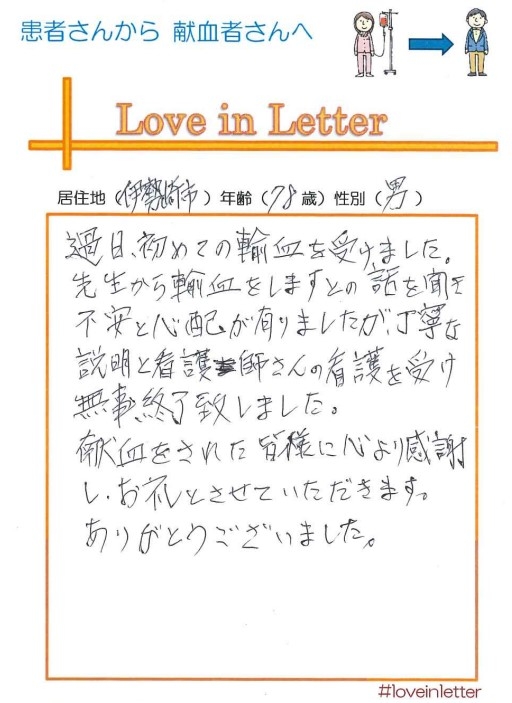 患者さんから 献血者さんへ
Love in Letter
居住地(伊勢崎市)年齢(78歳)性別(男)
過日、初めての輸血を受けました。
先生から輸血をしますとの話を聞き
不安と心配が有りましたが、丁寧な
説明と看護師さんの看護を受け
無事終了致しました。
献血をされた皆様に心より感謝
し、お礼とさせていただきます。
ありがとうございました。
#loveinletter